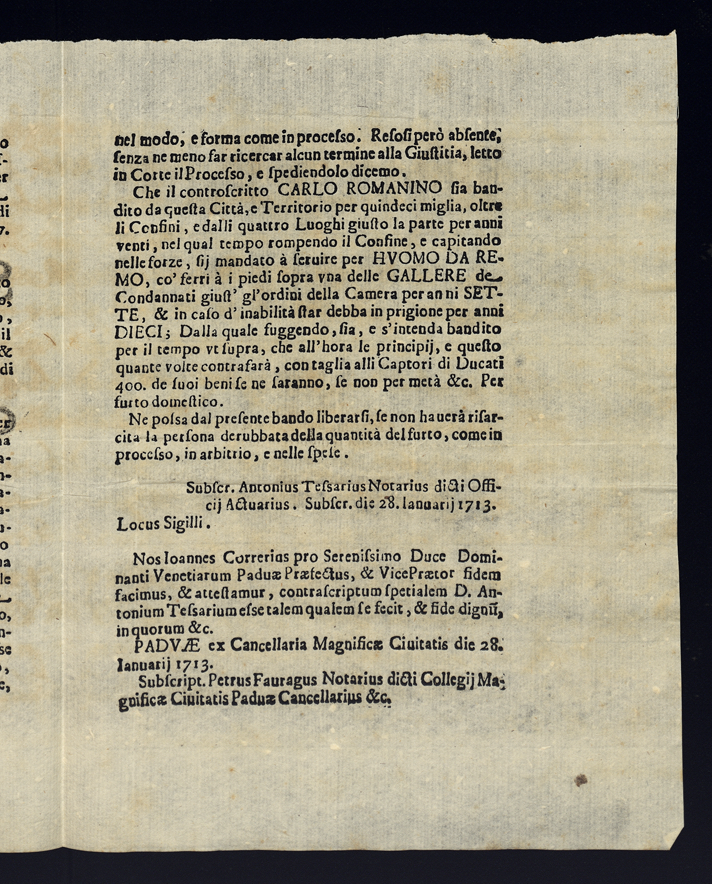 nel modo, e forma come in processo. Resosi però absente,
senza ne meno far ricercar alcun termine alla Giustitia, letto
in Corte il Processo, e spediendolo dicemo.
Che il controscritto CARLO ROMANINO sia ban-
dito da questa Città, e Territorio per quindeci miglia, oltre
li Confini, e dalli quattro Luoghi giusto la parte per anni
venti, nel qual tempo rompendo il Confine, e capitando
nelle forze, sij mandato à seruire per HVOMO DA RE-
MO, co' ferri à i piedi sopra vna delle GALLERE de
Condannati giust' gl'ordini della Camera per anni SET-
TE, & in caso d'inabilità star debba in prigione per anni
DIECI; Dalla quale fuggendo, sia, e s'intenda bandito
per il tempo vt supra, che all'hora le principij, e questo
quante volte contrafarà, con taglia alli Captori di Ducati
400. de suoi beni se ne saranno, se non per metà &c. Per
furto domestico.
Ne possa dal presente bando liberarsi, se non hauerà risar-
cita la persona derubbata della quantità del furto, come in
processo, in arbitrio, e nelle spese.
Subscr. Antonius Tessarius Notarius dicti Offi-
cij Actuarius. Subscr. die 28. Ianuarij 1713.
Locus Sigilli.
Nos Ioannes Correrius pro Serenissimo Duce Domi-
nanti Venetiarum Paduæ Præfectus, & VicePrætor fidem
facimus, & attestamur, contrascriptum spetialem D. An-
tonium Tessarium esse talem qualem se fecit, & fide dignũ,
in quorum &c.
PADVÆ ex Cancellaria Magnificæ Ciuitatis die 28.
Ianuarij 1713.
Subscript. Petrus Fauragus Notarius dicti Collegij Ma-
gnificæ Ciuitatis Paduæ Cancellarius &c.